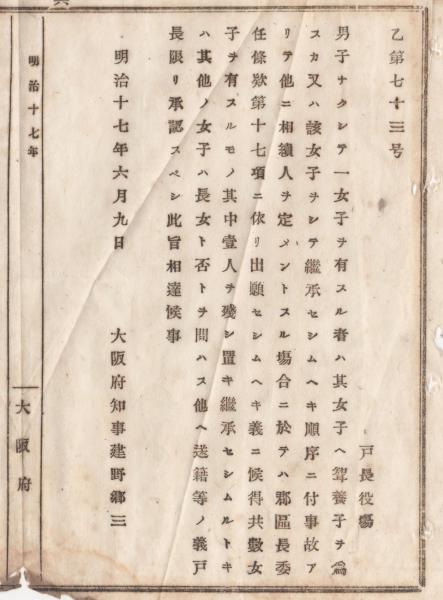 乙第七十三号
戸長役場
男子ナクシテ一女子ヲ有スル者ハ其女子ヘ聟養子ヲ為
スカ又ハ該女子ヲシテ継承セシムヘキ順序ニ付事故ア
リテ他ニ相續人ヲ定メントスル場合ニ於テハ郡區長委
任條欵第十七項ニ依リ出願セシムヘキ義ニ候得共數女
子ヲ有スルモノ其中壹人ヲ殘シ置キ継承セシムルトキ
ハ其他ノ女子ハ長女ト否トヲ問ハス他ヘ送籍等ノ義戸
長限リ承認スベシ此旨相達候事
明治十七年六月九日
大阪府知事建野郷三
明治十七年
大阪府